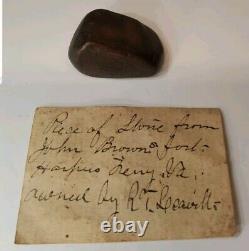 Piece of Stone from
John Browns fort
Harpers Ferry Va.
owned by R.T.